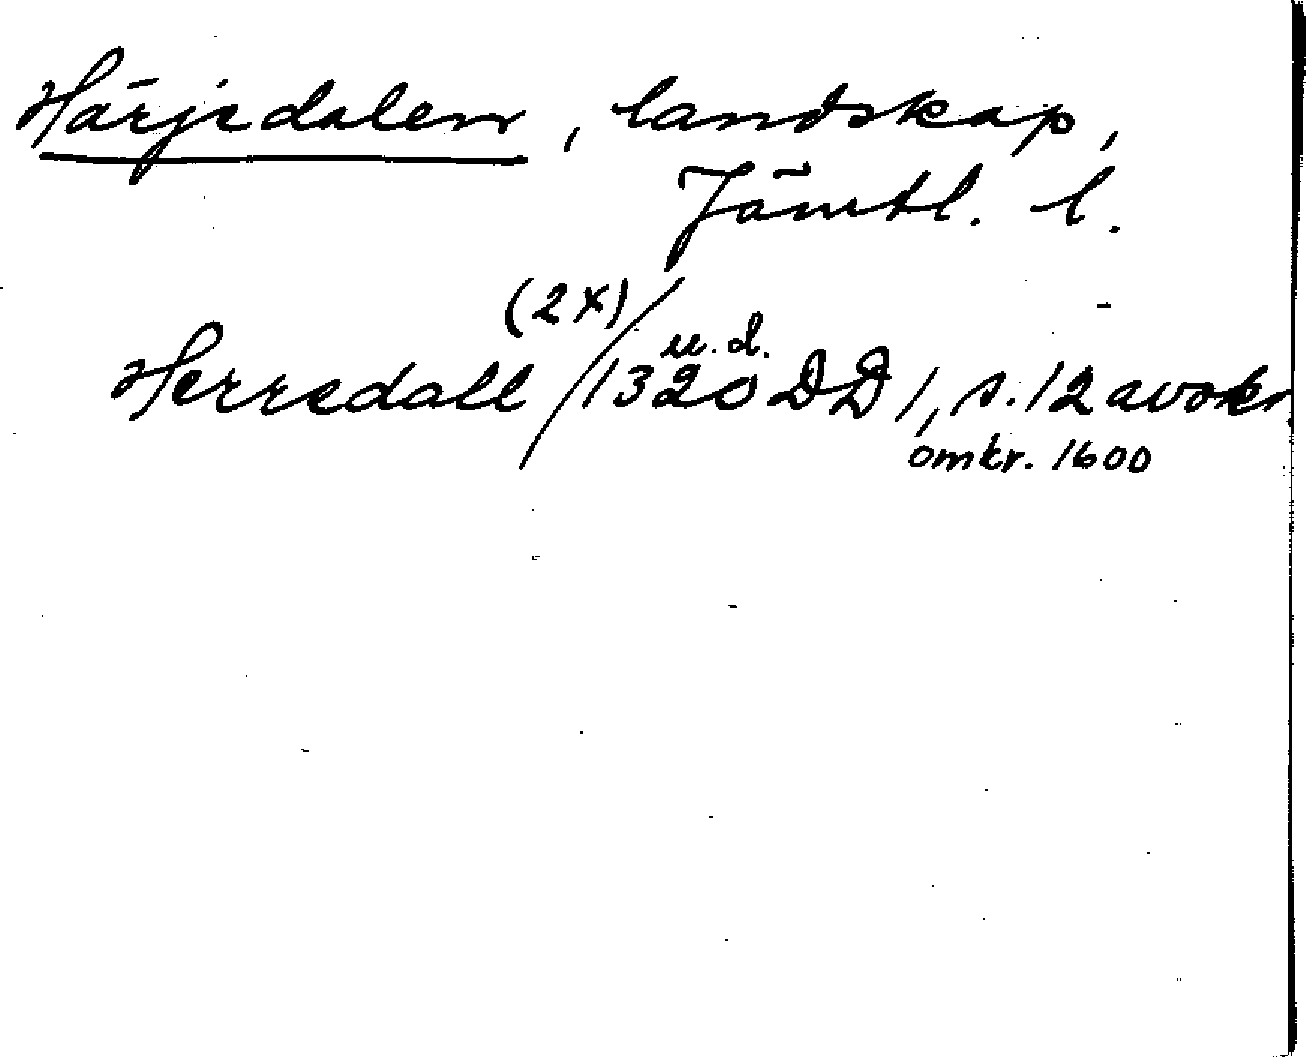 Härjedalen, landskap,
Jämtl. l.
(2x)
Herredall / 1320 u.d. DD 1, s. 12 avskr
omkr. 1600